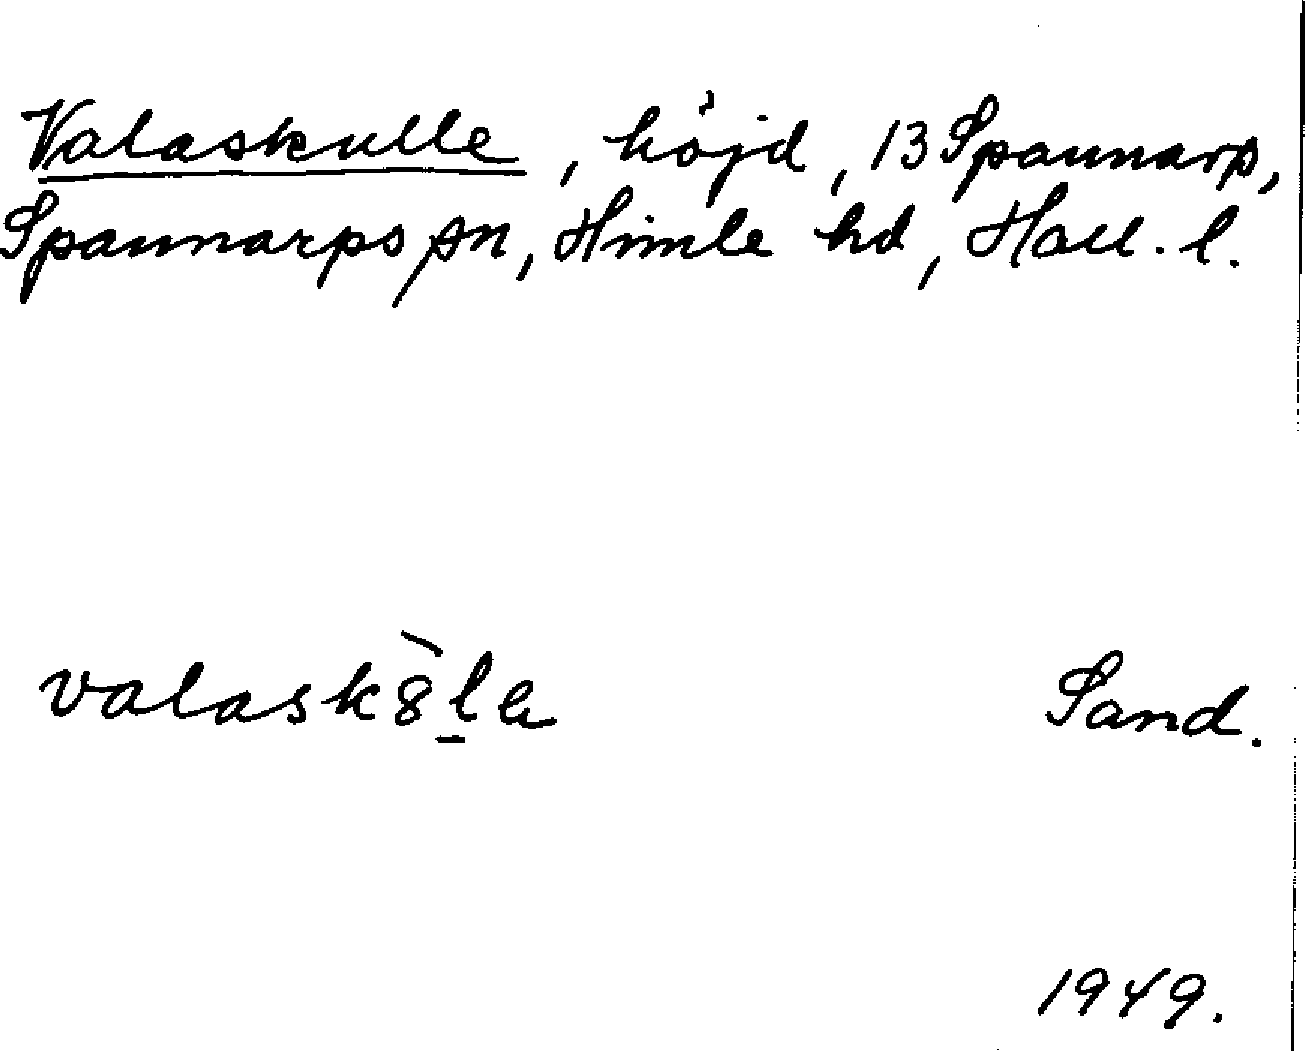 Valaskulle, höjd, 13 Spannarp,
Spannarps sn, Himle hd, Hall. l.
valask8̀l̠a Sand.
1949.